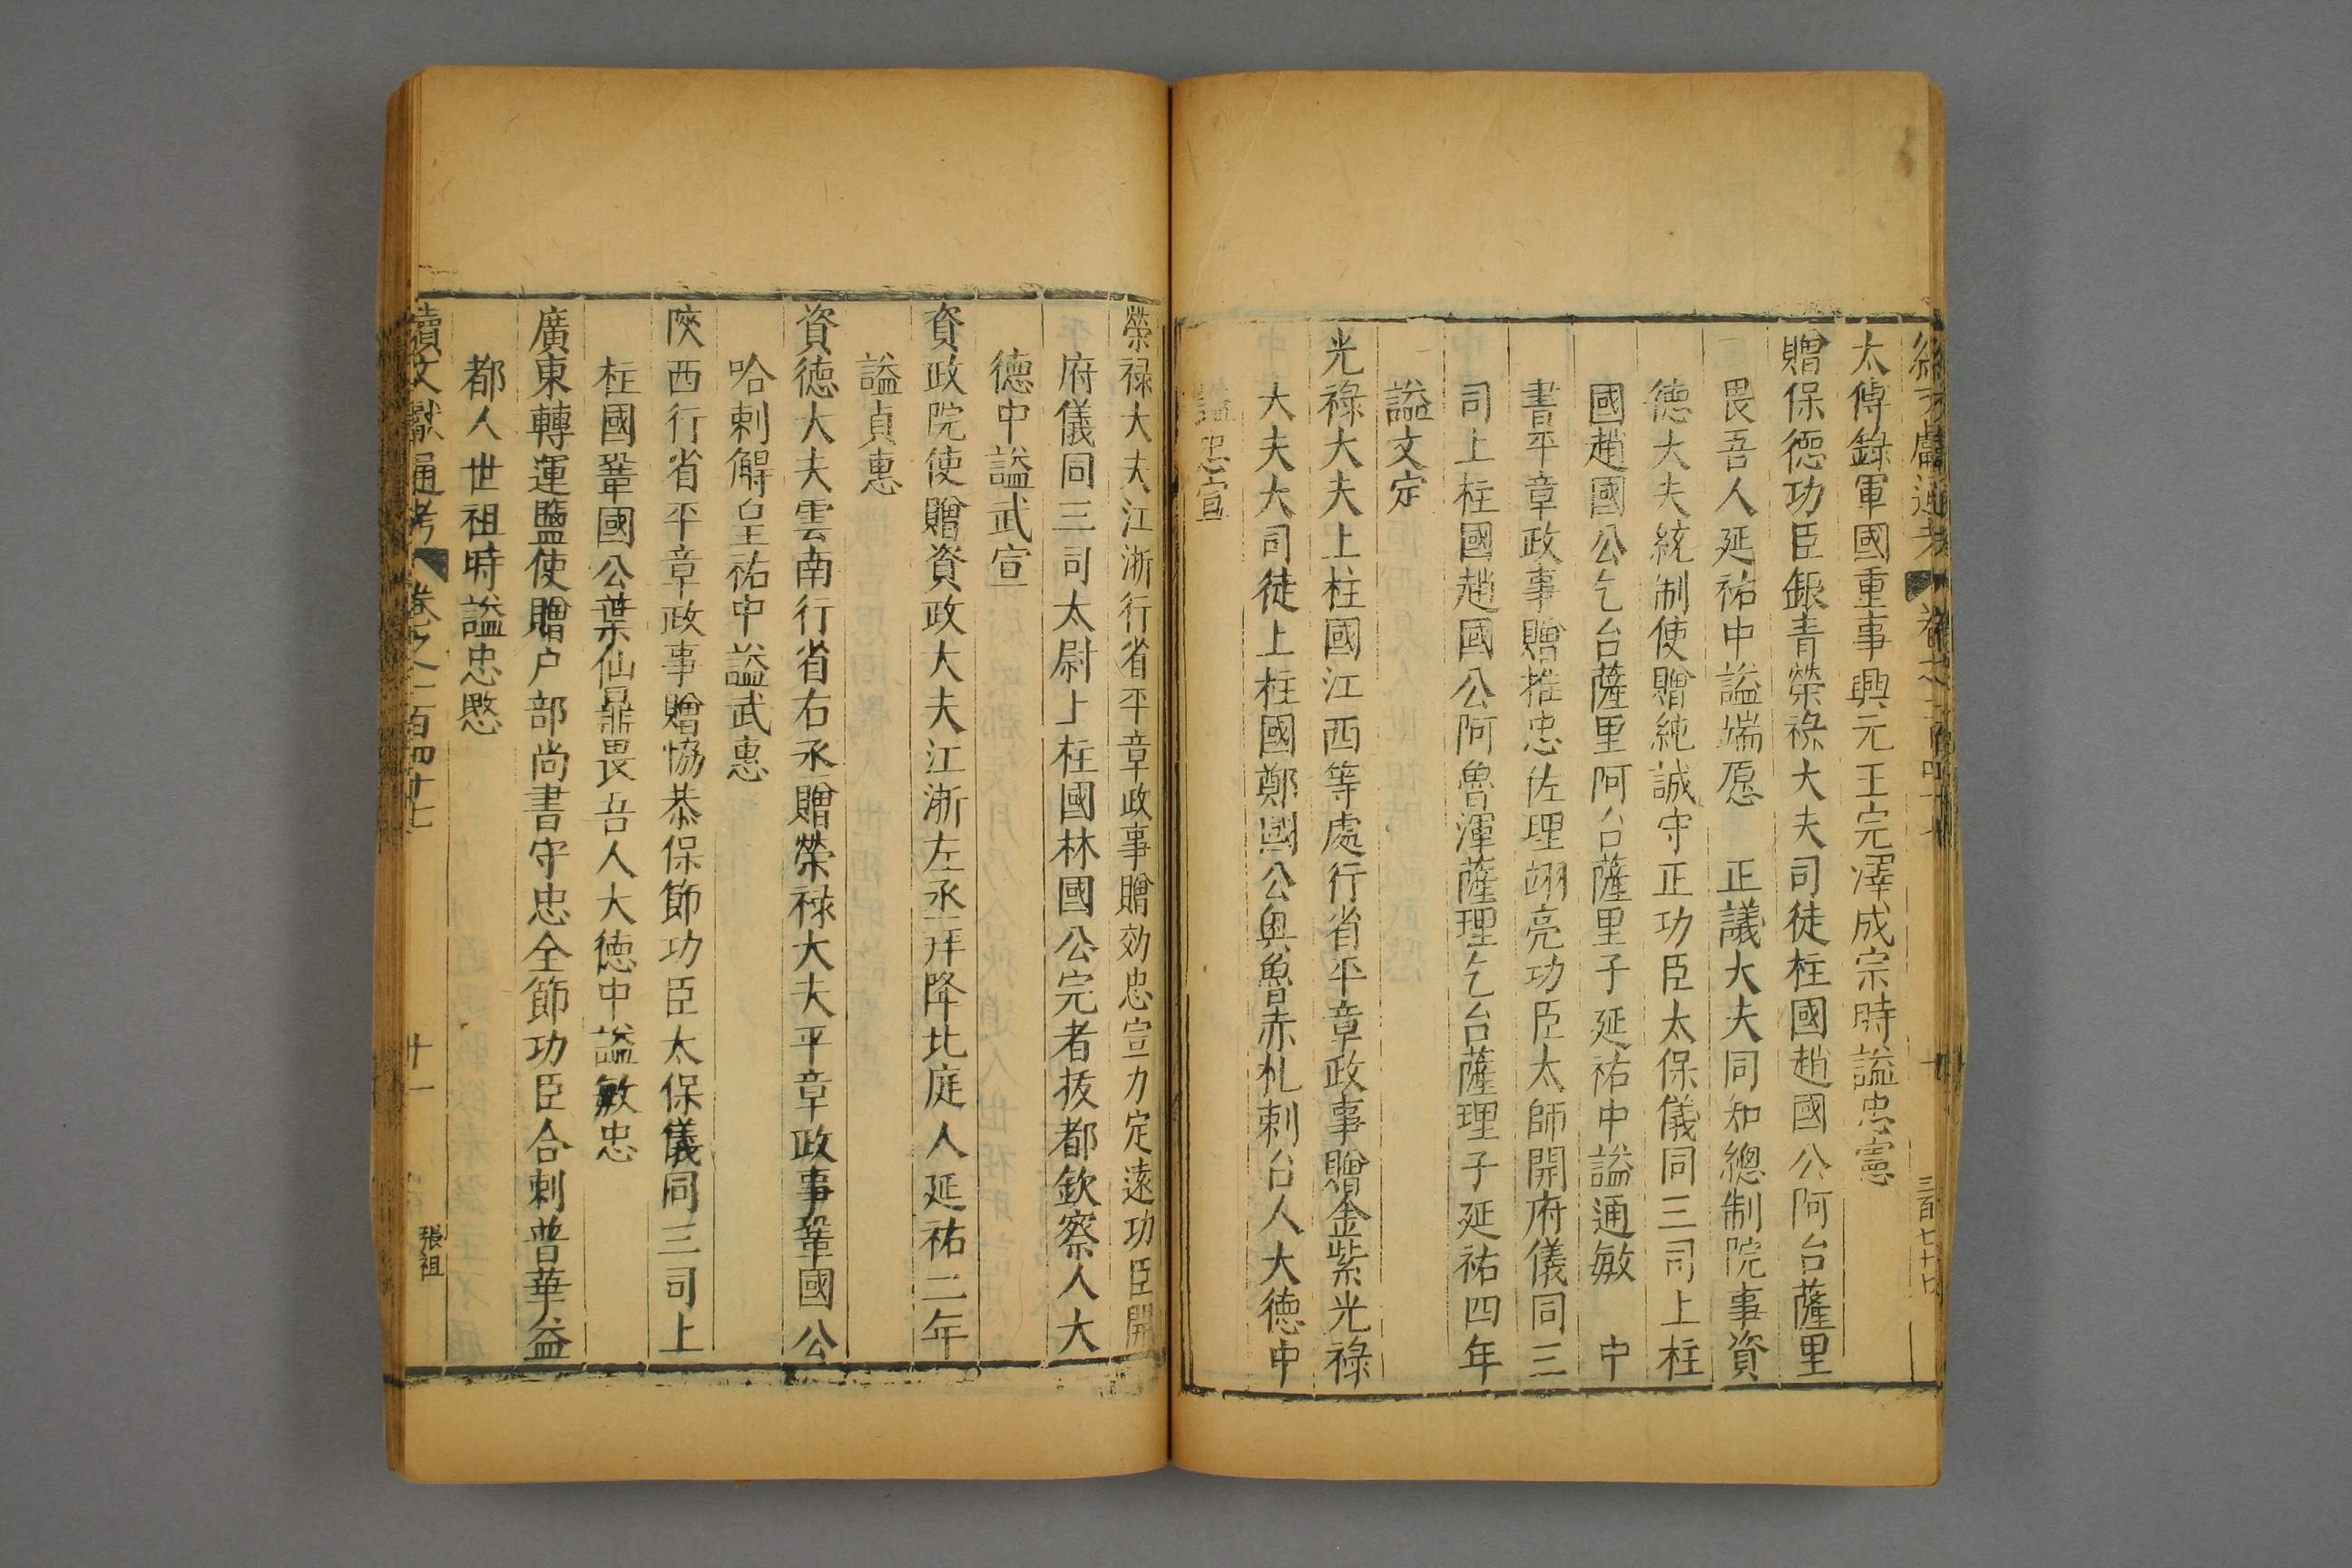 太傅錄軍國重事興元王完澤成宗時謚忠憲
贈保德功臣銀青榮祿大夫司徒柱國趙國公阿台薩里
畏吾人延祐中謚端愿　正議大夫同知總制院事資
德大夫統制使贈純誠守正功臣太保儀同三司上柱
國趙國公乞台薩里阿台薩里子延祐中謚通敏　中
書平章政事贈推忠佐理翊亮功臣太師開府儀同三
司上柱國趙國公阿魯渾薩理乞台薩理子延祐四年
謚文定
光祿大夫上柱國江西等處行省平章政事贈金紫光祿
大夫大司徒上柱國鄭國公奥魯赤札剌台人大德中
謚忠宣
榮祿大夫江浙行省平章政事贈効忠宣力定遠功臣開
府儀同三司太尉上柱國林國公完者拔都欽察人大
德中謚武宣
資政院使贈資政大夫江浙左丞拜降北庭人延祐二年
謚貞惠
資德大夫雲南行省右丞贈榮祿大夫平章政事鞏國公
哈剌觧皇祐中謚武惠
陝西行省平章政事贈恊恭保節功臣太保儀同三司上
柱國鞏國公葉仙鼐畏吾人大德中謚敏忠
廣東轉運鹽使贈户部尚書守忠全節功臣合剌普華益
都人世祖時謚忠愍
續文獻通考　卷之一百四十七　十一　張祖